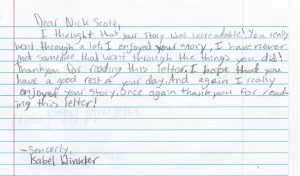 Dear Nick Scott,
I thought that your story was increadable! You really
went through a lot. I enjoyed your story. I have never
met someone that went through the things you did!
Thank you for reading this letter. I hope that you
have a good rest of your day. And again I really
enjoyed your story. Once again thank you for read
ing this letter!
- Sencerly,
Isabel Winkler